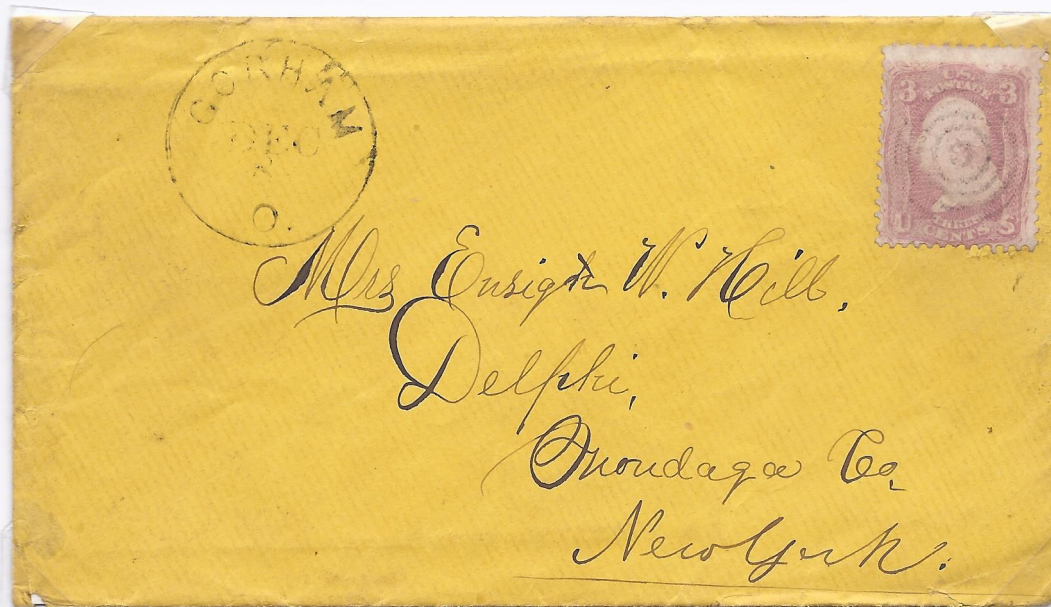 GORHAM
DEC
O.
U.S.
POSTAGE
3 3
U CENTS S
Mrs Ensign W. Hill,
Delphi,
Onondaga Co.
New York.